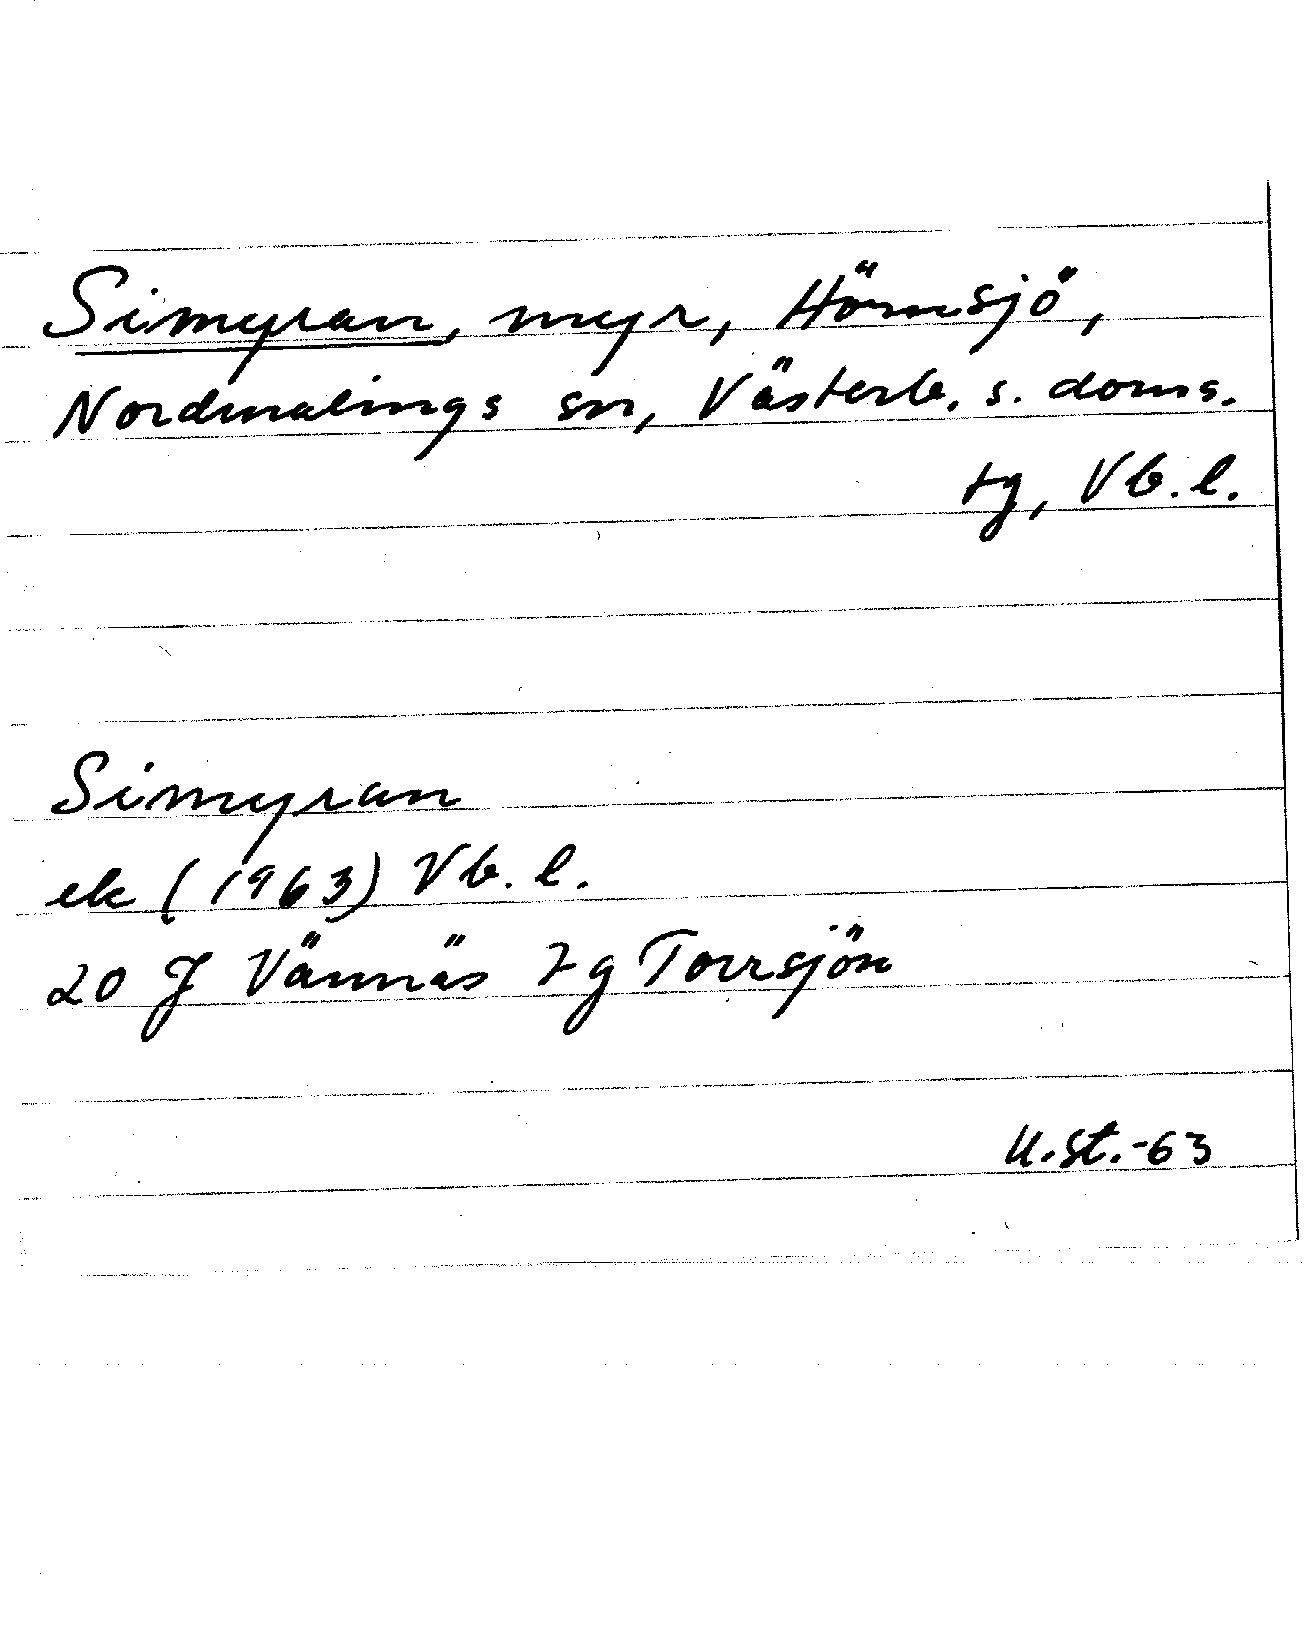 Simyran, myr, Hörnsjö,
Nordmalings sn, Västerb. s. doms.
tg, Vb. l.
Simyran
ek (1963) Vb. l.
20 J Vännäs tg Torrsjön
U.St.-63